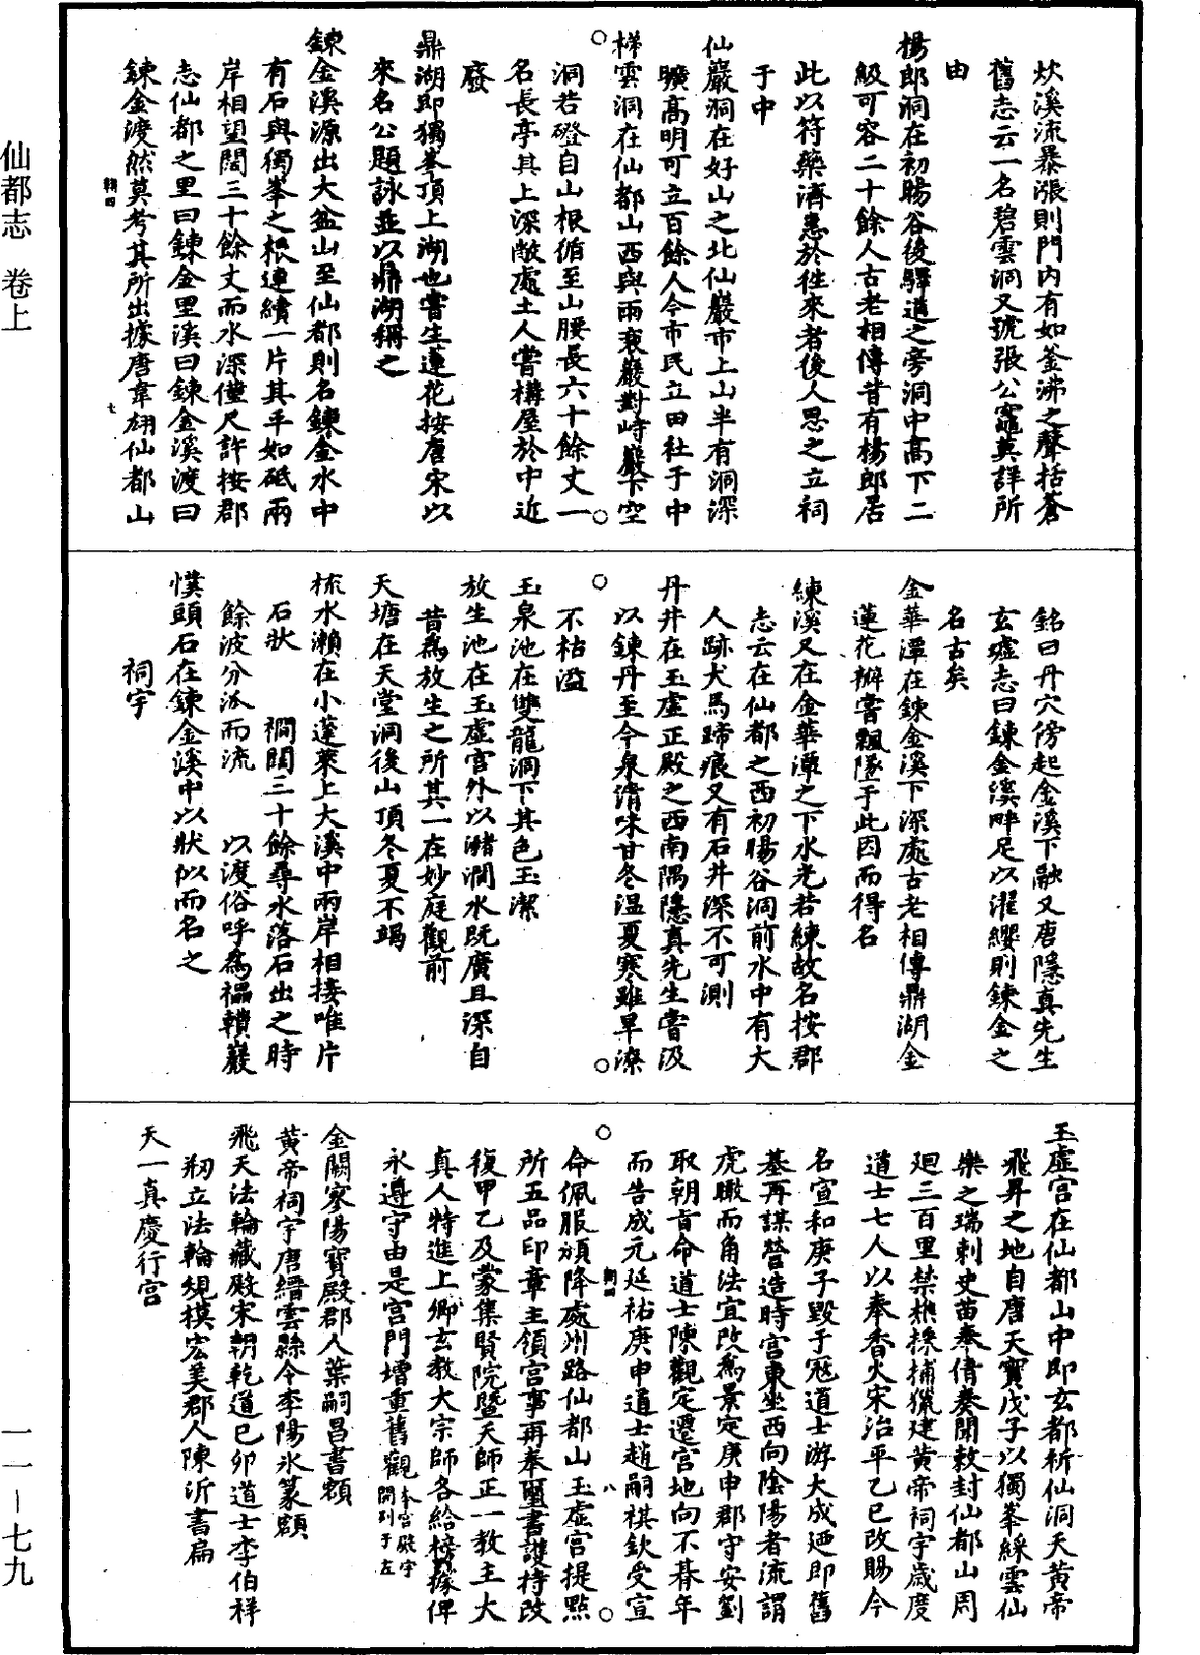 仙都志 卷上
一一－七九
炊溪流暴漲則門內有如釜沸之聲括蒼
舊志云一名碧雲洞又號張公竈莫詳所
由
楊郎洞在初暘谷後驛道之旁洞中高下二
級可容二十餘人古老相傳昔有楊郎居
此以符藥濟惠於往來者後人思之立祠
于中
仙巖洞在好山之北仙巖市上山半有洞深
曠高明可立百餘人今市民立田社于中
梯雲洞在仙都山西與雨衮巖對峙巖下空
洞若磴自山根循至山腰長六十餘丈一
名長亭其上深敞處土人嘗構屋於中近
廢
鼎湖即獨峯頂上湖也嘗生蓮花按唐宋以
來名公題詠並以鼎湖稱之
鍊金溪源出大盆山至仙都則名鍊金水中
有石與獨峯之根連續一片其平如砥兩
岸相望闊三十餘丈而水深僅尺許按郡
志仙都之里曰鍊金里溪曰鍊金溪渡曰
鍊金渡然莫考其所出據唐韋翃仙都山
七
銘曰丹穴傍起金溪下融又唐隱真先生
玄墟志曰鍊金溪畔足以濯纓則鍊金之
名古矣
金華潭在鍊金溪下深處古老相傳鼎湖金
蓮花瓣嘗飄墜于此因而得名
練溪又在金華潭之下水光若練故名按郡
志云在仙都之西初暘谷洞前水中有大
人跡犬馬蹄痕又有石井深不可測
丹井在玉虛正殿之西南隅隱真先生嘗汲
以鍊丹至今泉清味甘冬溫夏寒雖旱潦
不枯溢
玉泉池在雙龍洞下其色玉潔
放生池在玉虛宮外以瀦澗水既廣且深自
昔為放生之所其一在妙庭觀前
天塘在天堂洞後山頂冬夏不竭
梳水瀨在小蓬萊上大溪中兩岸相接唯片
石狀 襉闊三十餘尋水落石出之時
餘波分派而流 以渡俗呼為襵㡎巖
幞頭石在鍊金溪中以狀似而名之
祠宇
玉虛宮在仙都山中即玄都祈仙洞天黃帝
飛昇之地自唐天寶戊子以獨峯綵雲仙
樂之瑞刺史苗奉倩奏聞敕封仙都山周
廻三百里禁樵採捕獵建黃帝祠宇歲度
道士七人以奉香火宋治平乙巳改賜今
名宣和庚子毀于寇道士游大成廼即舊
基再謀營造時宮東坐西向陰陽者流謂
虎瞰而角法宜改為景定庚申郡守安劉
取朝旨命道士陳觀定遷宮地向不朞年
而告成元延祐庚申道士趙嗣祺欽受宣
命佩服頒降處州路仙都山玉虛宮提點
所五品印章主領宮事再奉璽書護持改
復甲乙及蒙集賢院暨天師正一教主大
真人特進上卿玄教大宗師各給榜據俾
永遵守由是宮門增重舊觀本宮殿宇開列于左
八
金闕寥陽寶殿郡人葉嗣昌書額
黃帝祠宇唐縉雲縣令李陽冰篆額
飛天法輪藏殿宋朝乾道己卯道士李伯祥
剏立法輪規模宏美郡人陳沂書扁
天一真慶行宮